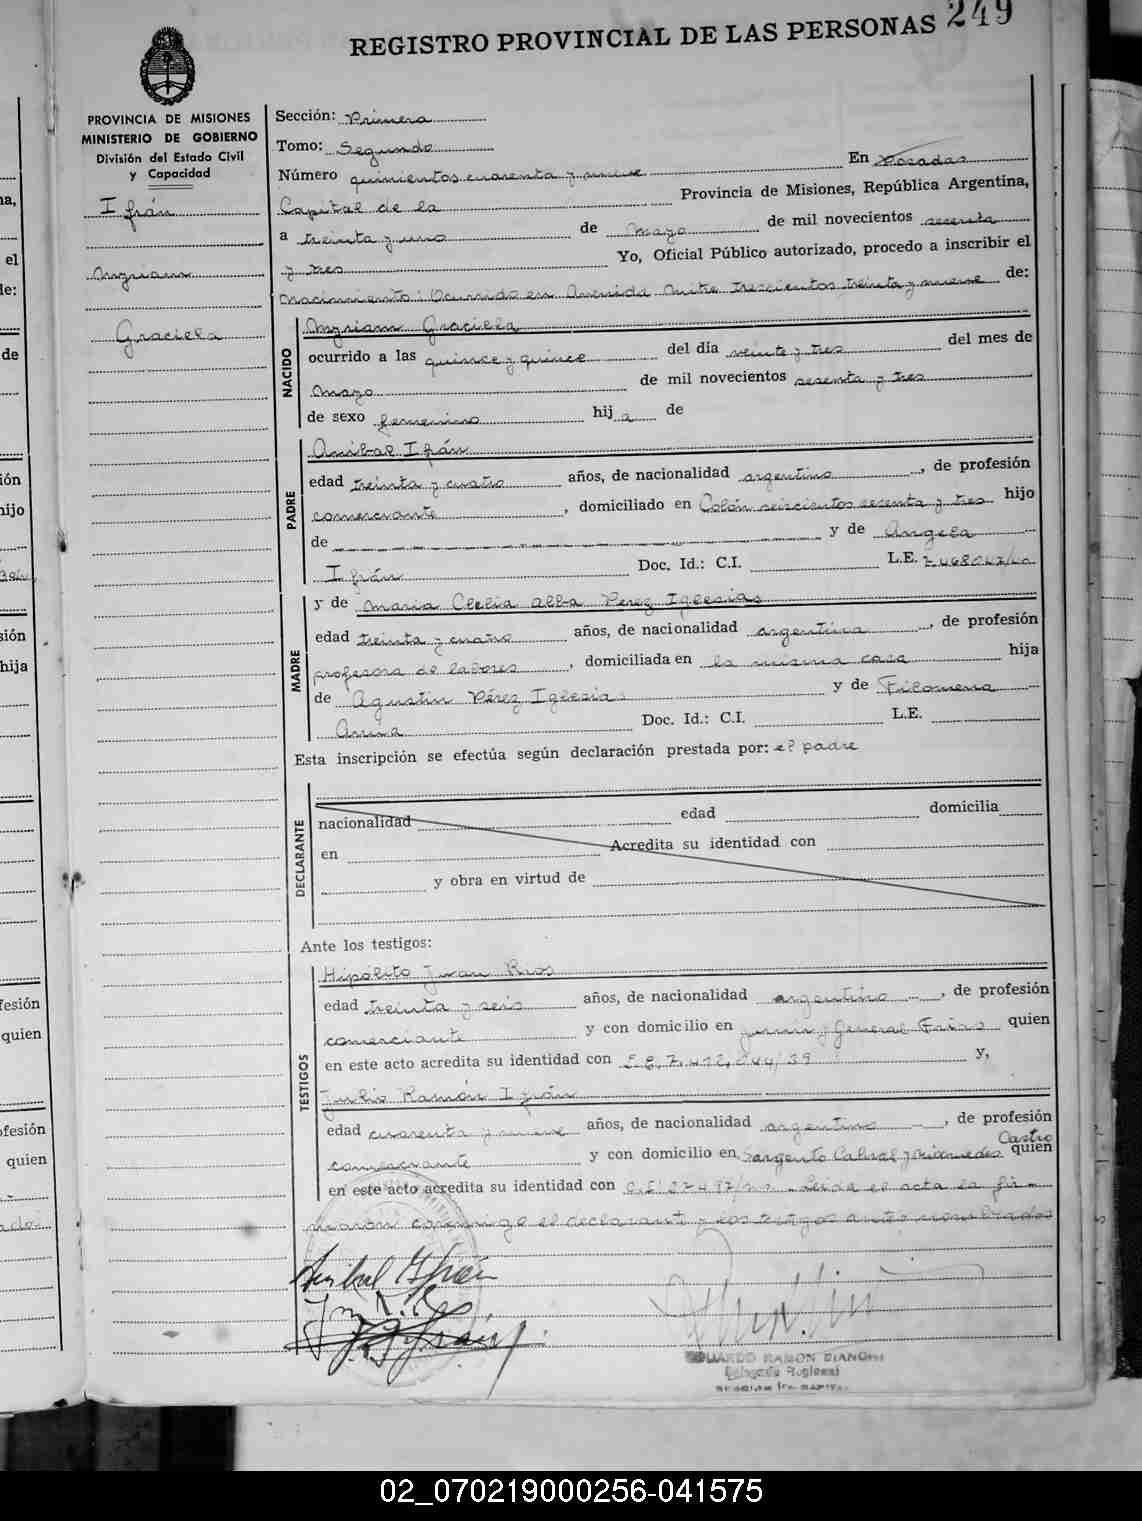 249
REGISTRO PROVINCIAL DE LAS PERSONAS
PROVINCIA DE MISIONES
MINISTERIO DE GOBIERNO
División del Estado Civil
y Capacidad
Ifrán
Myriam
Graciela
Sección: Primera
Tomo: Segundo
Número quinientos cuarenta y nueve En Posadas
Capital de la Provincia de Misiones, República Argentina,
a treinta y uno de Mayo de mil novecientos sesenta
y tres Yo, Oficial Público autorizado, procedo a inscribir el
nacimiento: Ocurrido en Avenida Mitre trescientos treinta y nueve de:
NACIDO
Myriam Graciela
ocurrido a las quince y quince del día veinte y tres del mes de
Mayo de mil novecientos sesenta y tres
de sexo femenino hija de
PADRE
Anibal Ifrán
edad treinta y cuatro años, de nacionalidad argentino, de profesión
comerciante, domiciliado en Colón seiscientos sesenta y tres hijo
de y de Angela
Ifrán Doc. Id.: C.I. L.E. 7.468047
MADRE
y de María Clelia Alba Perez Iglesias
edad treinta y cuatro años, de nacionalidad argentina, de profesión
profesora de labores, domiciliada en la misma casa hija
de Agustin Pérez Iglesias y de Filomena
Doc. Id.: C.I. L.E.
Esta inscripción se efectúa según declaración prestada por: el padre
DECLARANTE
nacionalidad edad domicilia
en Acredita su identidad con
y obra en virtud de
Ante los testigos:
TESTIGOS
Hipólito Juan Rios
edad treinta y seis años, de nacionalidad argentino, de profesión
comerciante y con domicilio en Junin y General Frias quien
en este acto acredita su identidad con L.E. 7.412.044/39 y,
Julio Ramón Ifrán
edad cuarenta y nueve años, de nacionalidad argentino, de profesión
Castro
comerciante y con domicilio en Sargento Cabral y quien
en este acto acredita su identidad con Leida el acta la fir-
maron conmigo el declarant y los testigos antes nombrados
Anibal Ifrán
EDUARDO RAMON BIANCHI
Delegado Regional
02_070219000256-041575